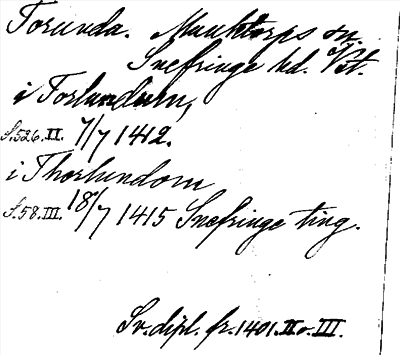 Torunda. Munktorps sn.
Snefringe hd. Vst.
i Torlundum,
S.526.II. 7/7 1412.
i Thorlundom
S.58.III. 18/7 1415 Snefringe ting.
Sv. dipl. fr. 1401. II o. III.